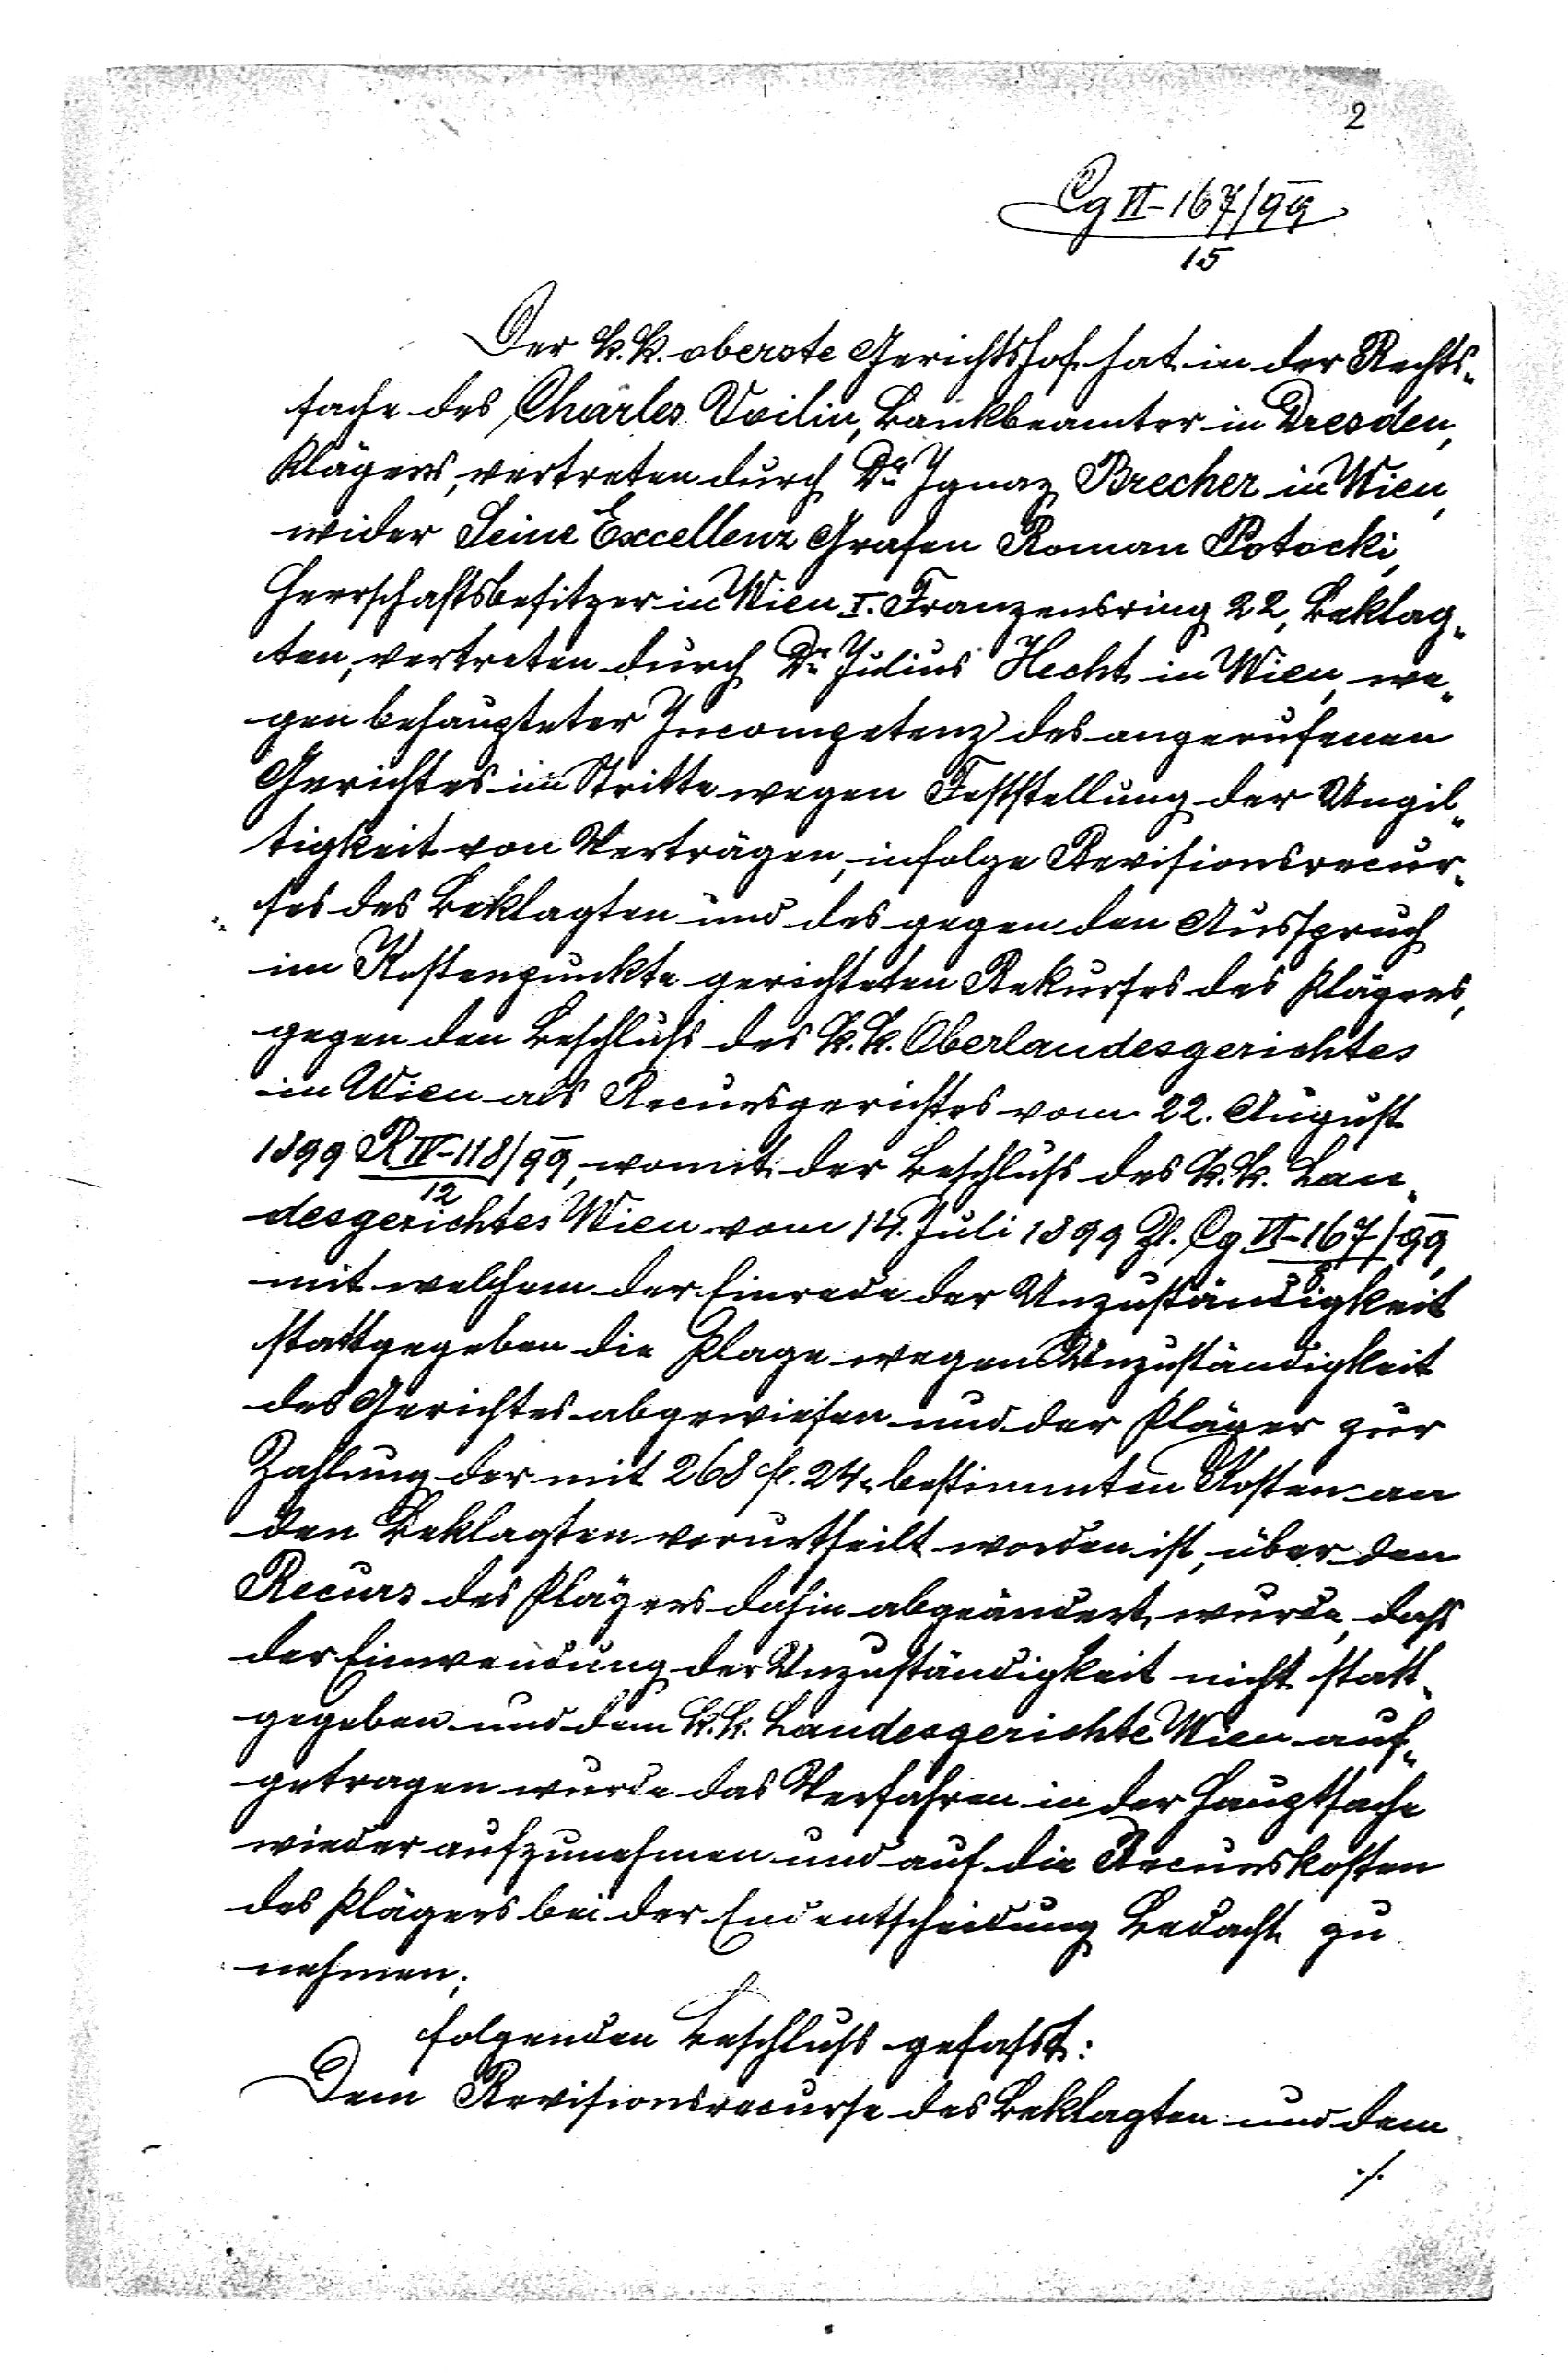 2
Cg VI-167/99
15
Der k. k. oberste Gerichtshof hat in der Rechts-
sache des Charles Voilin, Bankbeamter in Dresden,
Klägers, vertreten durch Dr. Ignaz Brecher in Wien,
wider Seine Excellenz Grafen Roman Potocki,
Herrschaftsbesitzer in Wien I. Franzensring 22, Beklag-
ten, vertreten durch Dr. Julius Hecht in Wien, we-
gen behaupteter Incompetenz des angerufenen
Gerichtes im Stritte wegen Feststellung der Ungil-
tigkeit von Verträgen, infolge Revisionsrecur-
ses des Beklagten und des gegen den Ausspruch
im Kostenpunkte gerichteten Rekurses des Klägers,
gegen den Beschluß des k. k. Oberlandesgerichtes
in Wien als Recursgerichtes vom 22. August
1899 R IV-118/99, womit der Beschluß des k. k. Lan-
12
desgerichtes Wien vom 14. Juli 1899 Zl. Cg VI-167/99,
mit welchem der Einrede der Unzuständigkeit
stattgegeben die Klage wegen Unzuständigkeit
des Gerichtes abgewiesen und der Kläger zur
Zahlung der mit 268 fl. 24 bestimmten Kosten an
den Beklagten verurtheilt worden ist, über den
Recurs des Klägers dahin abgeändert wurde, daß
der Einwendung der Unzuständigkeit nicht statt-
gegeben und dem k. k. Landesgerichte Wien auf-
getragen wurde das Verfahren in der Hauptsache
wieder aufzunehmen und auf die Recurskosten
des Klägers bei der Endentscheidung Bedacht zu
nehmen;
folgenden Beschluß gefaßt:
Dem Revisionsrecurse des Beklagten und dem
./.